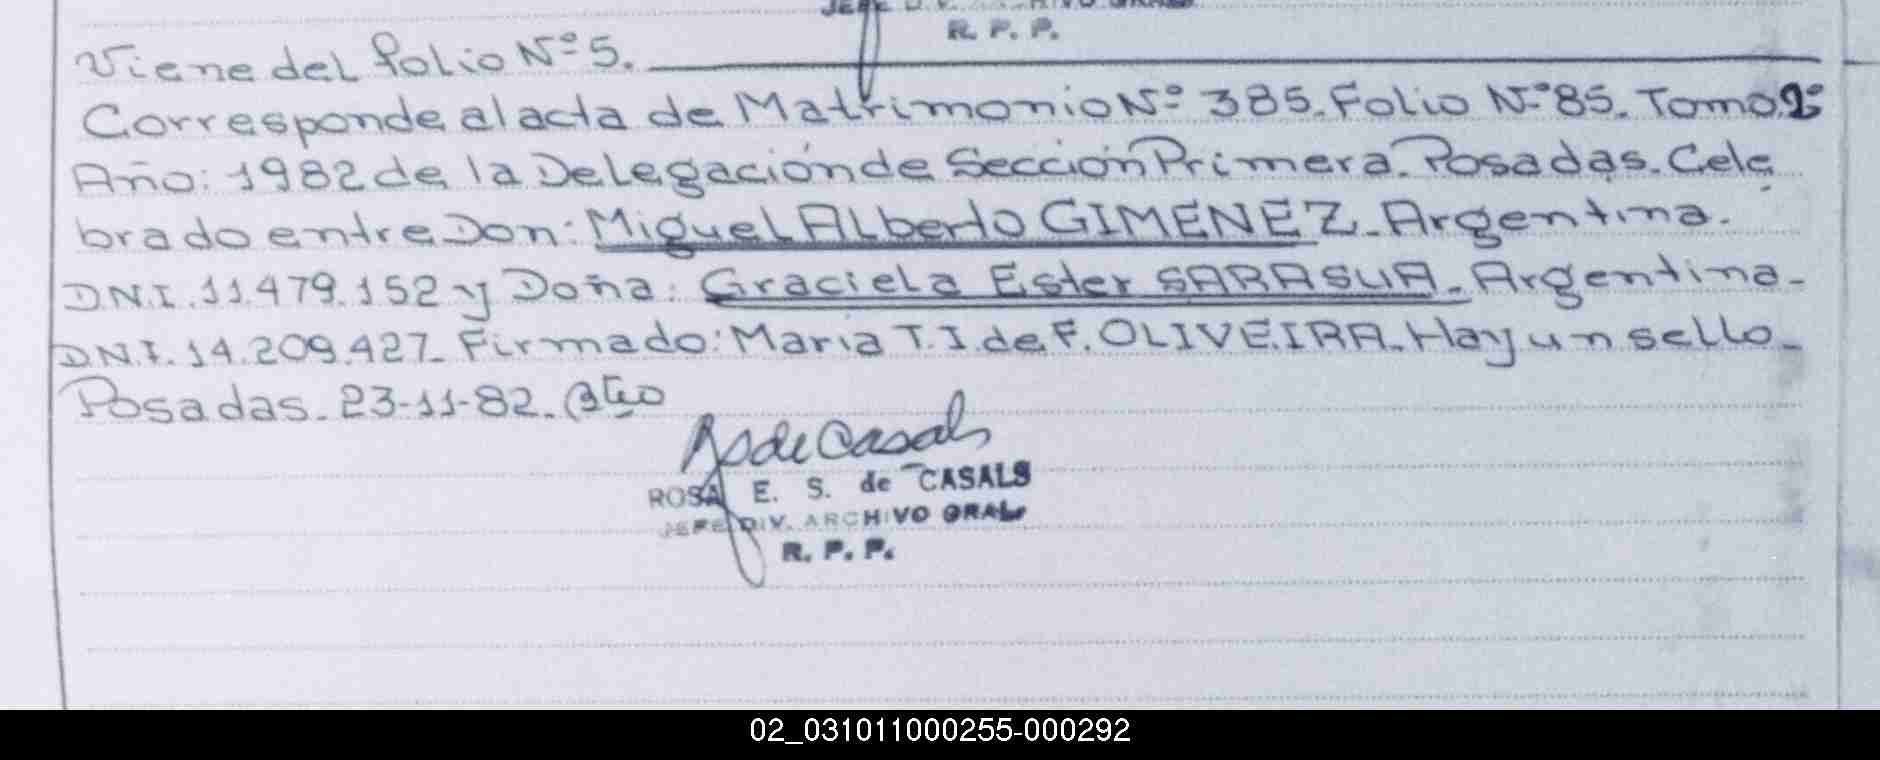 R. P. P.
Viene del folio Nº 5.
Corresponde al acta de Matrimonio Nº 385. Folio Nº 85. Tomo 2º
Año: 1982 de la Delegación de Sección Primera. Posadas. Cele
brado entre Don: Miguel Alberto GIMENEZ. Argentina.
D.N.I. 11.479.152 y Doña: Graciela Ester SARASUA. Argentina-
D.N.I. 14.209.427. Firmado: Maria T. I. de F. OLIVEIRA. Hay un sello-
Posadas. 23-11-82.
R S de Casals
ROSA E. S. de CASALS
JEFE DIV. ARCHIVO GRAL.
R. P. P.
02_031011000255-000292